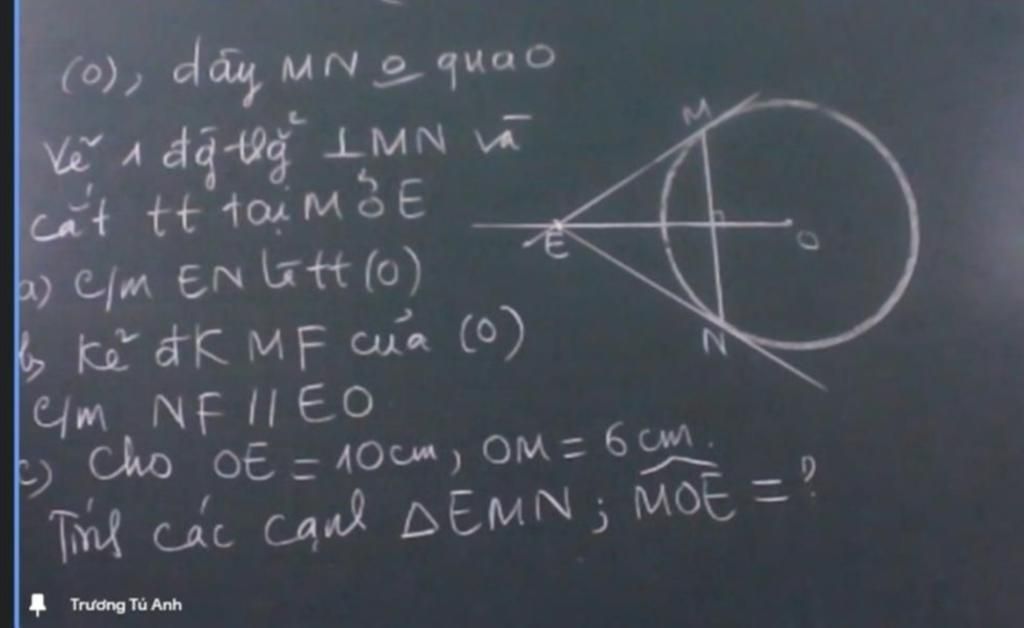 (O), dây MN o qua O
Vẽ 1 đg thg ⊥MN và
cắt tt tại M ở E
a) C/m EN là tt (O)
b, Kẻ đK MF của (O)
C/m NF // EO
c) Cho OE = 10cm, OM = 6cm.
Tính các cạnh ΔEMN; MOE = ?
M
E
O
N
Trương Tú Anh